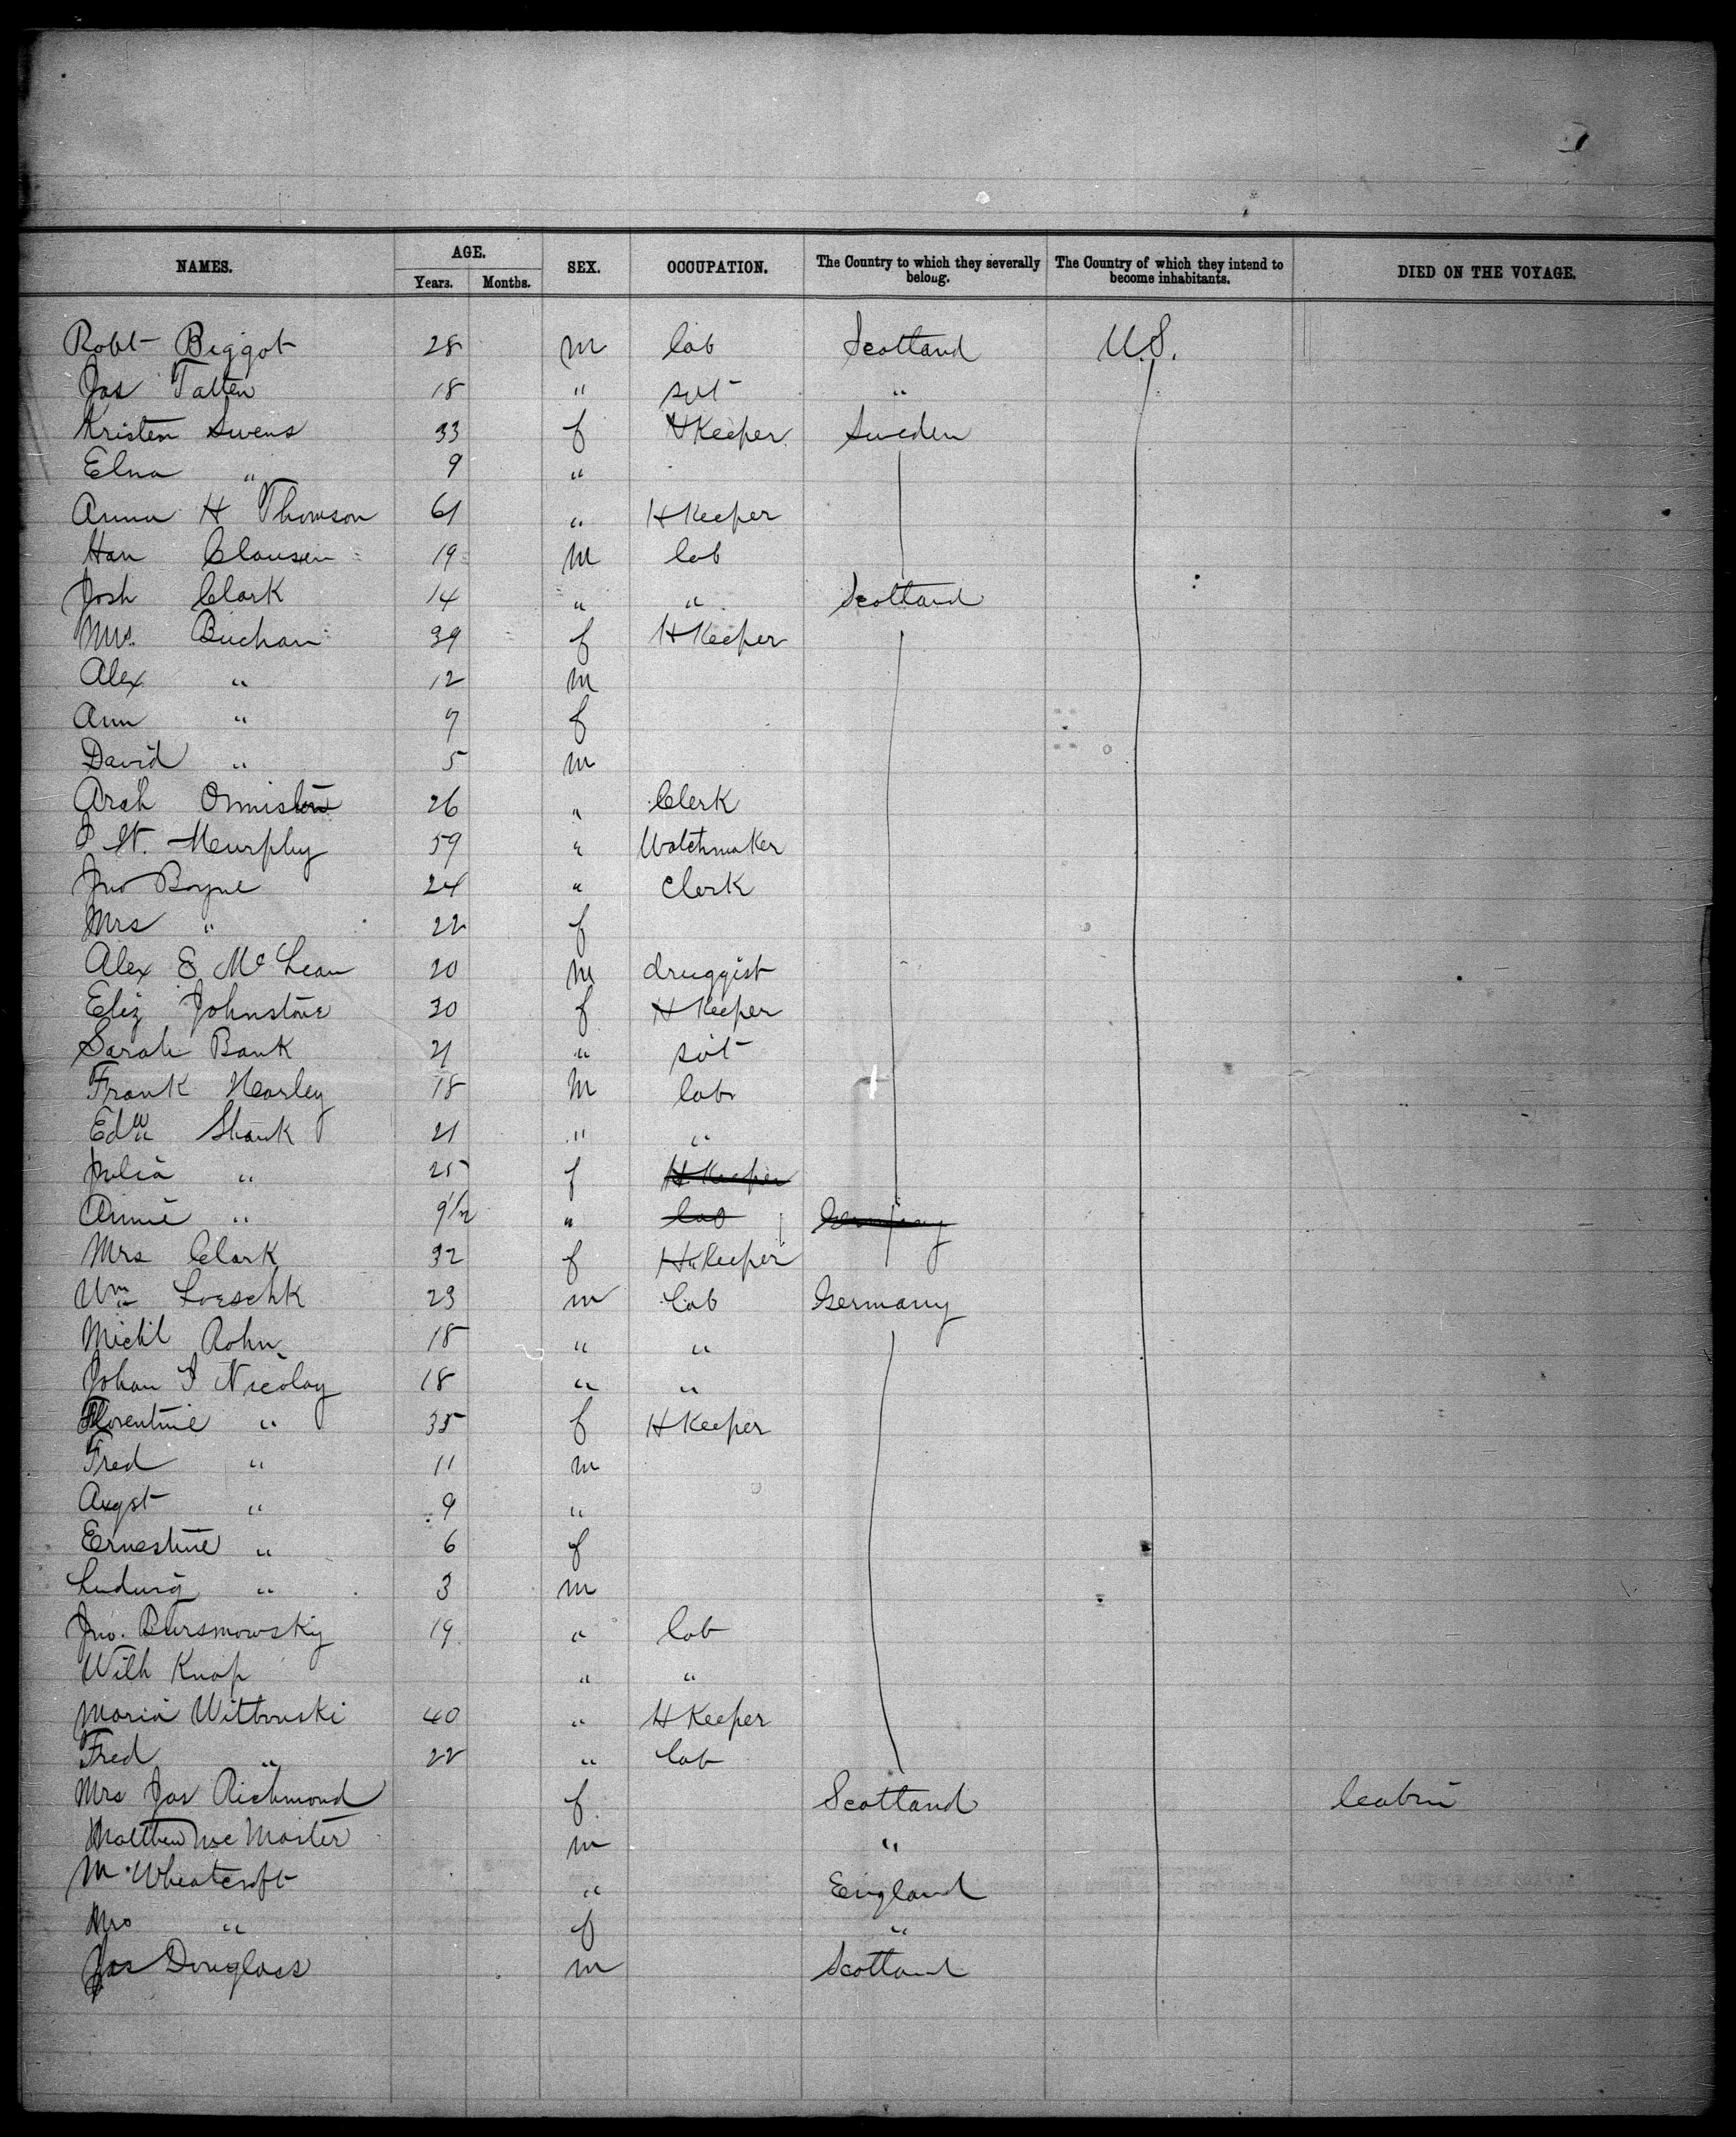 NAMES. AGE. Years. Months. SEX. OCCUPATION. The Country to which they severally belong. The Country of which they intend to become inhabitants. DIED ON THE VOYAGE.
Robt Biggot 28 m lab Scotland U.S.
Jas Tatten 18 " svt "
Kristen Swens 33 f H Keeper Sweden
Elna " 9 "
Anna H Thomson 61 " H Keeper
Han Clausen 19 m lab
Josh Clark 14 " " Scotland
Mrs. Buchan 39 f H Keeper
Alex " 12 m
Ann " 7 f
David " 5 m
Arch Ormiston 26 " Clerk
Murphy 59 " Watchmaker
Jno Boyne 24 " Clerk
Mrs " 22 f
Alex S McLean 20 m druggist
Eliz Johnstone 30 f H Keeper
Sarah Bank 21 " svt
Frank Harley 18 m lab
Edw Shank 21 " "
Julia " 25 f H Keeper
Annie " 9/12 " lab Germany
Mrs Clark 32 f H Keeper
Wm Loeschk 23 m lab Germany
Michl Rohn 18 " "
Johan F Nicolay 18 " "
Florentine " 35 f H Keeper
Fred " 11 m
Augst " 9 "
Ernestine " 6 f
Ludwig " 3 m
Jno. Bursmowsky 19 " lab
Wilh Knop " "
Maria Witbouski 40 " H Keeper
Fred " 22 " lab
Mrs Jas Richmond f Scotland Cabin
Matthew McMaster m "
M Wheatcroft " England
Mrs " f "
Jas Douglass m Scotland